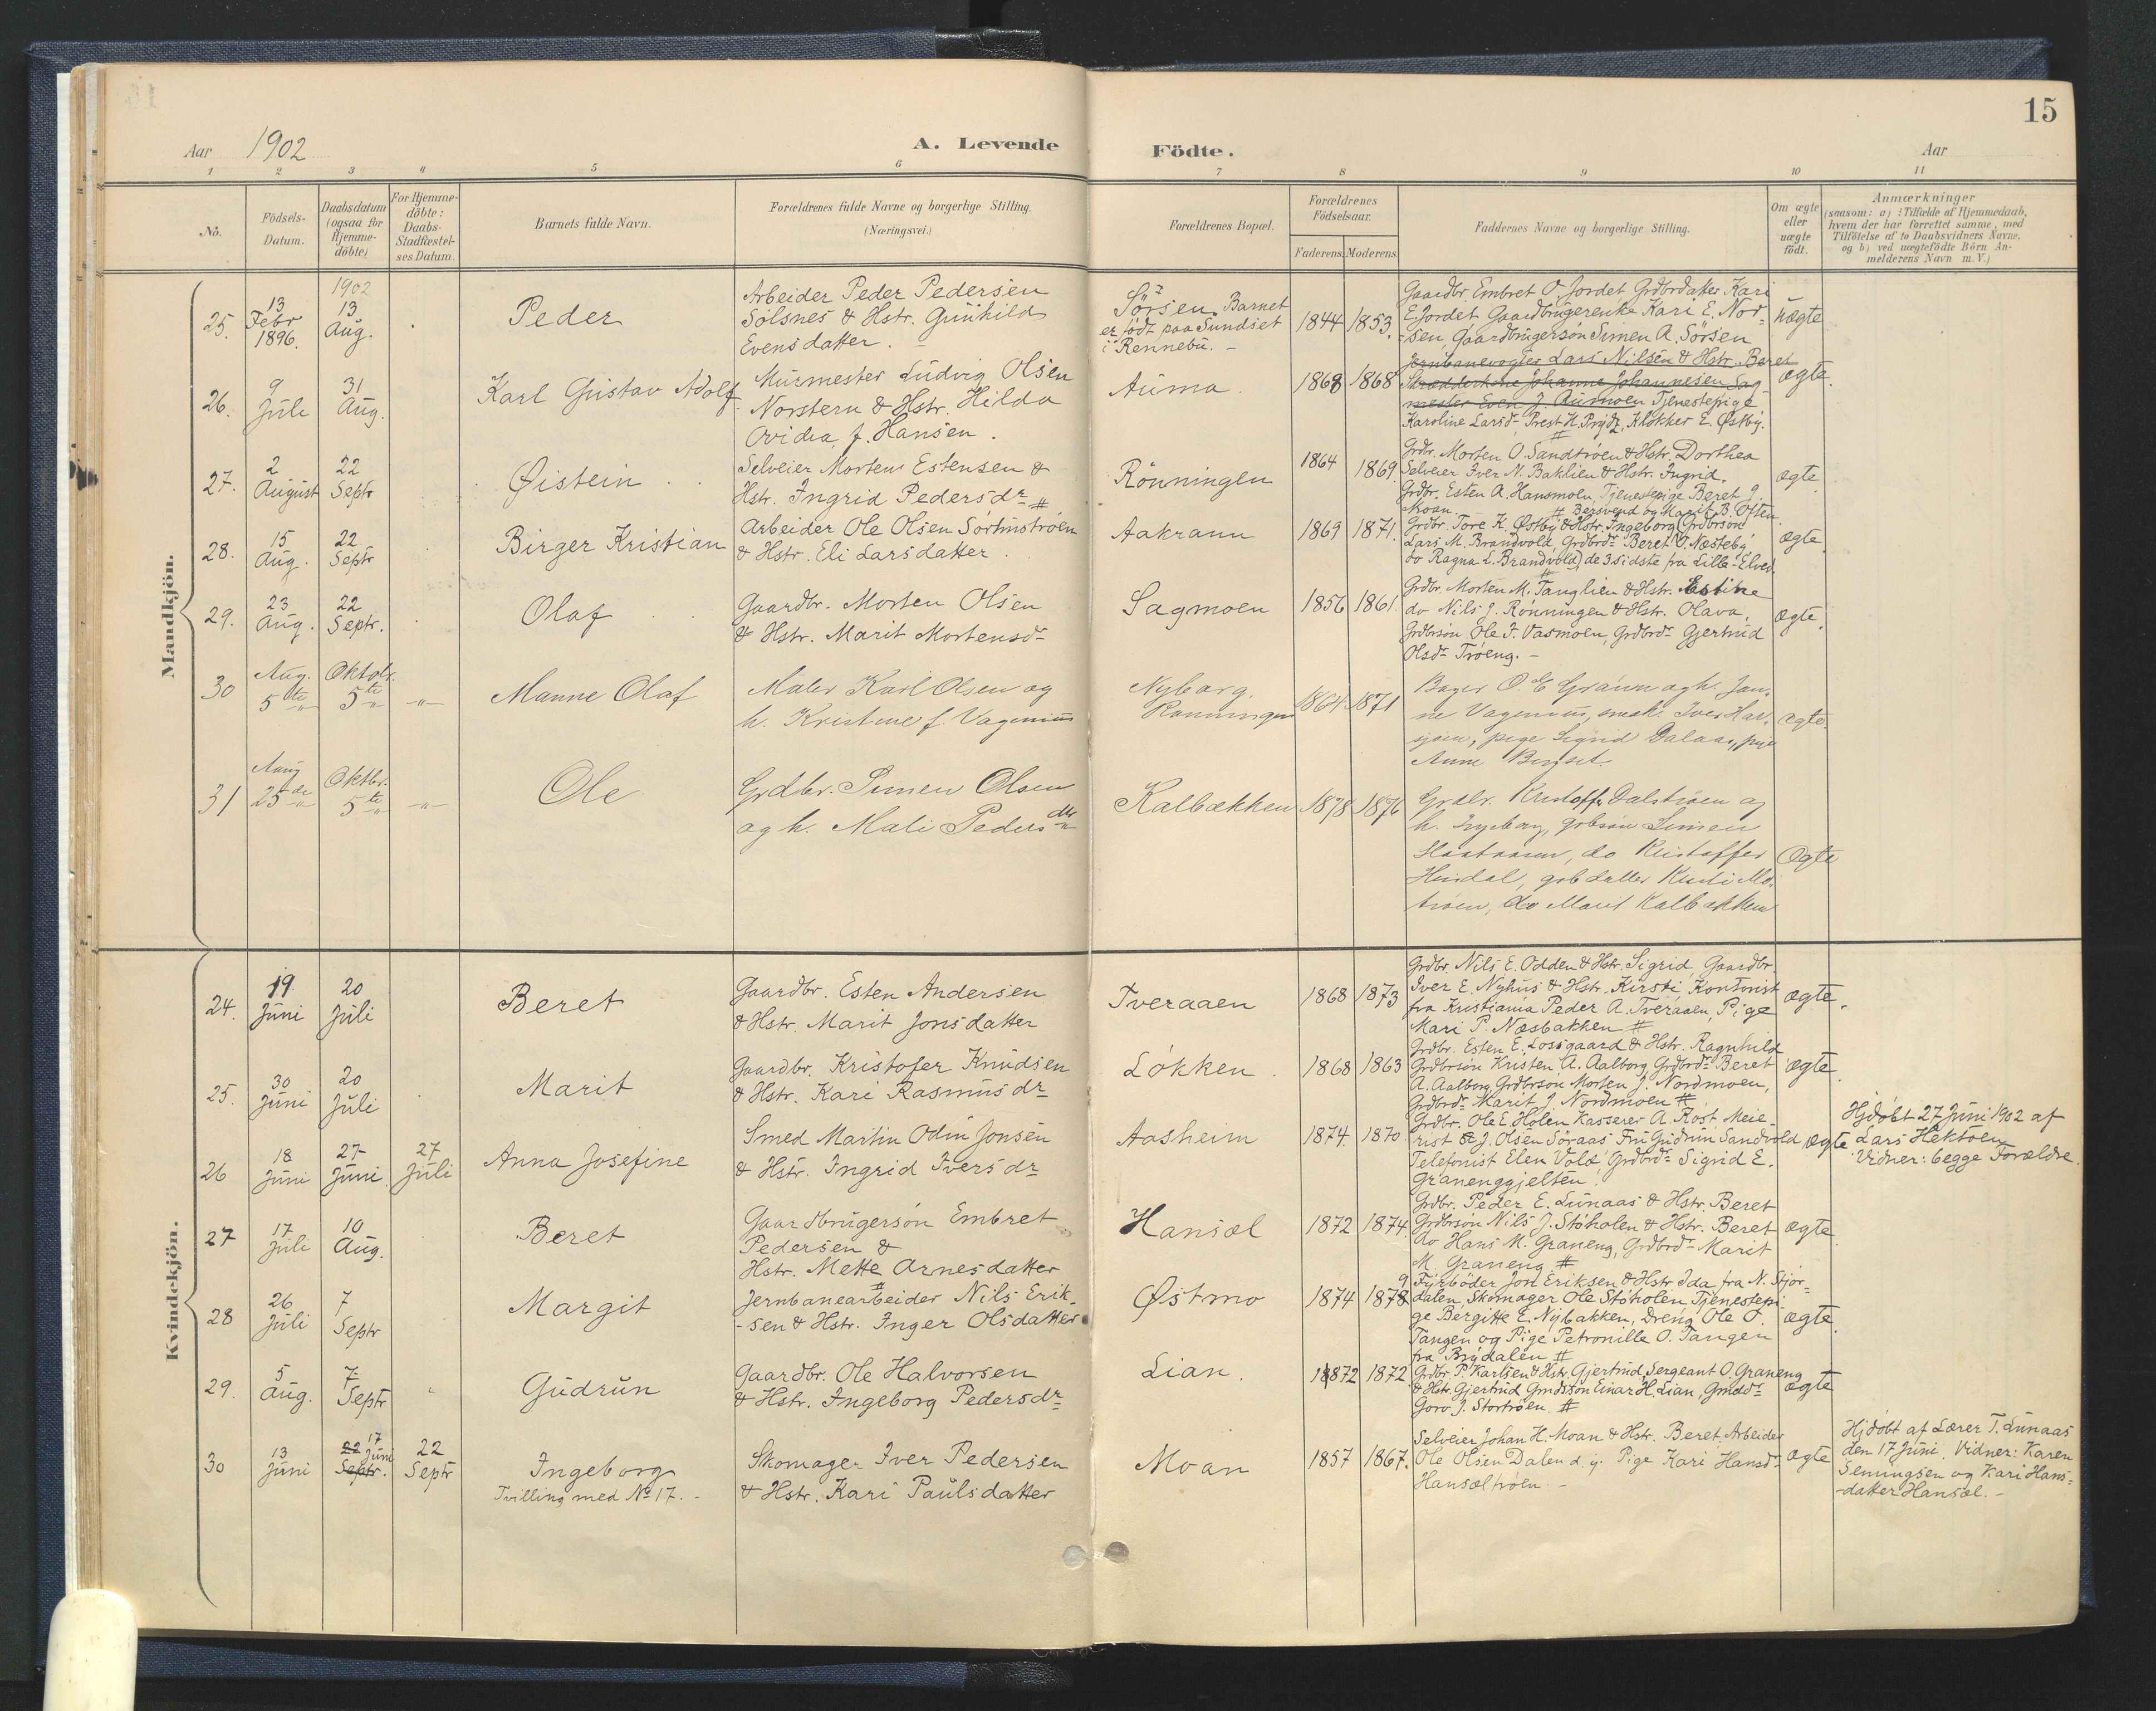 15
Aar 1902
A. Levende Födte.
Aar
1 2 3 4 5 6 7 8 9 10 11
No.
Födsels-
Datum.
Daabsdatum
(ogsaa för
Hjemme-
döbte)
For Hjemme-
döbte:
Daabs-
Stadfæstel-
ses Datum.
Barnets fulde Navn.
Forældrenes fulde Navne og borgerlige Stilling.
(Næringsvei.)
Forældrenes Bopæl.
Forældrenes
Födselsaar.
Faderens. Moderens.
Faddernes Navne og borgerlige Stilling.
Om ægte
eller
uægte
födt.
Anmærkninger
(saasom: a) i Tilfælde af Hjemmedaab,
hvem der har forrettet samme, med
Tilföielse af to Daabsvidners Navne,
og b) ved uægtefödte Börn An-
melderens Navn m. V.)
Mandkjön.
25.
13
Febr
1896.
1902
13
Aug.
Peder
Arbeider Peder Pedersen
Solsnes & Hstr. Gunhild
Evensdatter.
Sörsen. Barnet
er født paa Sundset
i Rennebu. -
1844 1853.
Gaardbr. Embret O. Jordet Grdbrdatter Kari
E. Jordet Gaardbrugerenke Kari E. Nor-
sen, Gaardbrugersön Simen A. Sörsen
uægte
26.
9
Juli
31
Aug.
Karl Gustav Adolf
Murmester Ludvig Olsen
Norstern & Hstr. Hilda
Ovidia, f. Hansen.
Auma.
1868 1868
Jernbanevogter Lars Nilsen & Hstr. Beret
Skrædderkone Johanne Johannesen Sag-
mester Even J. Aumoen Tjenestepige
Karoline Larsdr Prest H. Prydz, Klokker E. Østby.
ægte.
27.
2
August
22
Septr
Øistein
Selveier Morten Estensen &
Hstr. Ingrid Pedersdr #
Rönningen
1864 1869.
Grdbr. Morten O. Sandtröen & Hstr. Dorthea
Selveier Iver N. Baklien & Hstr. Ingrid.
Grdbr. Esten A. Hansmoen, Tjenestepige Beret J.
Moan. # Bersvend og Marit B. Often.
ægte
28.
15
Aug.
22
Septr
Birger Kristian
Arbeider Ole Olsen Sörtuströen
& Hstr. Eli Larsdatter.
Aakrann
1869 1871.
Grdbr. Tore K. Østby & Hstr. Ingeborg (Grdbrsön
Lars M. Brandvold, Grdbrdr Beret O. Næsteby
do Ragna L. Brandvold) de 3 sidste fra Lille-Elved.
ægte.
29.
23
Aug.
22
Septr.
Olaf
Gaardbr. Morten Olsen
& Hstr. Marit Mortensdr
Sagmoen
1856 1861.
Grdbr. Morten M. Tanglien & Hstr. Estine
do Nils J. Rönningen & Hstr. Olava,
Grdbrsön Ole F. Vasmoen, Grdbrdr Gjertrud
Olsdr Tröeng. -
ægte.
30
Aug.
5te
Oktobr.
5te
-"-
Manne Olaf
Maler Karl Olsen og
h. Kristine f. Vagenius
Nyborg,
Rønningen
1864 1871
Bager O. E. Gränn og h. Jan-
ne Vagenius, snek. Iver Har-
sjøen, pige Sigrid Dalaas, pige
Anne
ægte.
31
Aug
25de
Oktbr.
5te
-"-
Ole
Grdbr. Simen Olsen
og h. Mali Pedersdtr
Kalbækken
1878 1876
Grdbr. Kristoffer Dalstrøen og
h. Ingeborg, grbsøn Simen
do Kristoffer
grbdatter
trøen, do Marit Kalbækken
Ægte
Kvindekjön.
24.
19
Juni
20
Juli
Beret
Gaardbr. Esten Andersen
& Hstr. Marit Jonsdatter
Tveraaen
1868 1873
Grdbr. Nils E. Odden & Hstr. Sigrid, Gaardbr.
Iver E. Nyhus & Hstr. Kirsti Kontorist
fra Kristiania Peder A. Tveraaen, Pige
Mari P. Næsbakken #
ægte.
25.
30
Juni
20
Juli
Marit
Gaardbr. Kristofer Knudsen
& Hstr. Kari Rasmusdr
Lökken.
1868 1863
Grdbr. Esten E. Lossgaard & Hstr. Ragnhild
Grdbrsön Kristen A. Aalborg, Grdbrdr Beret
A. Aalborg Grdbrsön Morten J. Nordmoen,
Grdbrdr Marit J. Nordmoen #
ægte.
26
18
Juni
27
Juni
27
Juli
Anna Josefine
Smed Martin Odin Jonsen
& Hstr. Ingrid Iversdr
Aasheim
1874. 1870
Grdbr. Ole E. Holen Kasserer A. Rost. Meie-
rist J. Olsen Söraas Fru Gudrun Sandvold
Telefonist Elen Vold Grdbrdr Sigrid E.
Granenggjelten.
ægte.
Hjdöbt 27 Juni 1902 af
Lars Hektoen
Vidner: begge Forældre.
27
17
Juli
10
Aug.
Beret
Gaardbrugersön Embret
Pedersen &
Hstr. Mette Arnesdatter
Hansæl
1872 1874.
Grdbr. Peder E. Lunaas & Hstr. Beret
Grdbrsön Nils J. Stöholen & Hstr. Beret
do Hans M. Graneng, Grdbrdr Marit
M. Graneng #
ægte.
28
26
Juli
7
Septr
Margit
Jernbanearbeider Nils Erik-
-sen & Hstr. Inger Olsdatter
Østmo
1874 1878
9
Fyrböder Jon Eriksen & Hstr Ida fra N. Stjör-
dalen, Skomager Ole Stöholen Tjenestepi-
ge Bergitte E. Nybakken, Dreng Ole O.
Tangen og Pige Petronille O. Tangen
fra Brydalen #
ægte.
29.
5
Aug.
7
Septr
Gudrun
Gaardbr. Ole Halvorsen
& Hstr. Ingeborg Pedersdr
Lian.
1872 1872
Grdbr. P. Karlsen & Hstr. Gjertrud, Sergeant O. Graneng
& Hstr. Gjertrud Grndssön Einar H. Lian, Grnddr
Goro J. Stortröen. #
ægte
30
13
Juni
17
22 Juni
Septr.
22
Septr
Ingeborg
Tvilling med No 17. -
Skomager Iver Pedersen
& Hstr. Kari Paulsdatter
Moan
1857 1867.
Selveier Johan H. Moan & Hstr. Beret, Arbeider
Ole Olsen Dalen d. y. Pige Kari Hansdr
Hansæltröen -
ægte
Hjdöbt af Lærer T. Lunaas
den 17 Juni. Vidner: Karen
Semingsen og Kari Hans-
-datter Hansæl. -